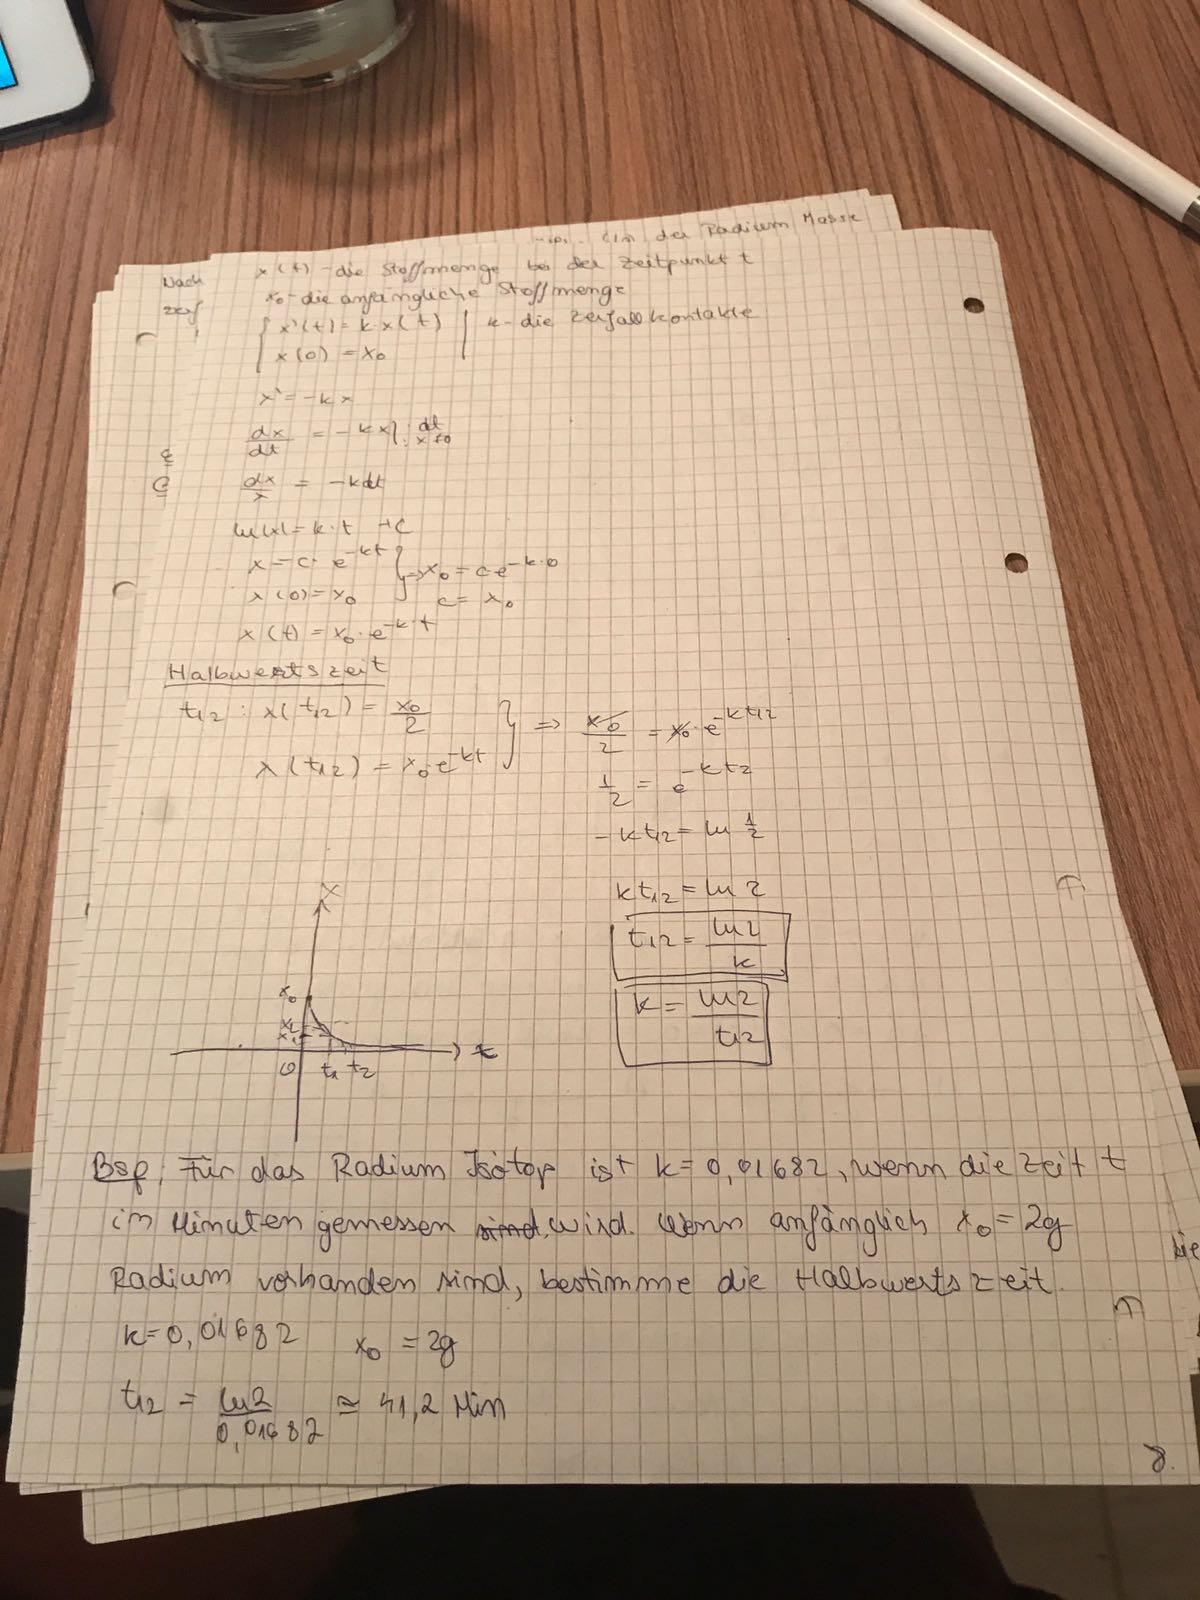 der Radium Masse
Nach
x(t) - die Stoffmenge bei der Zeitpunkt t
zerf
x₀ - die anfängliche Stoffmenge
{ x'(t) = k·x(t) | k - die Zerfallkontakte
x(0) = x₀
x' = -kx
dx/dt = -kx | · dt/x≠0
dx/x = -kdt
ln|x| = k·t + C
x = c · e^-kt } => x₀ = c e^-k·0
x(0) = x₀ c = x₀
x(t) = x₀ · e^-k·t
Halbwertszeit
t₁₂ : x(t₁₂) = x₀/2 } => x₀/2 = x₀ · e^-kt₁₂
x(t₁₂) = x₀·e^-kt
1/2 = e^-kt₂
-kt₁₂ = ln 1/2
kt₁₂ = ln 2
t₁₂ = ln2/k
k = ln2/t₁₂
x
x₀
0 t₁ t₂ t
Bsp: Für das Radium Isotop ist k = 0,01682, wenn die Zeit t
in Minuten gemessen sind wird. Wenn anfänglich x₀ = 2g
Radium vorhanden sind, bestimme die Halbwertszeit.
k = 0,01682 x₀ = 2g
t₁₂ = ln2/0,01682 ≅ 41,2 Min
8.